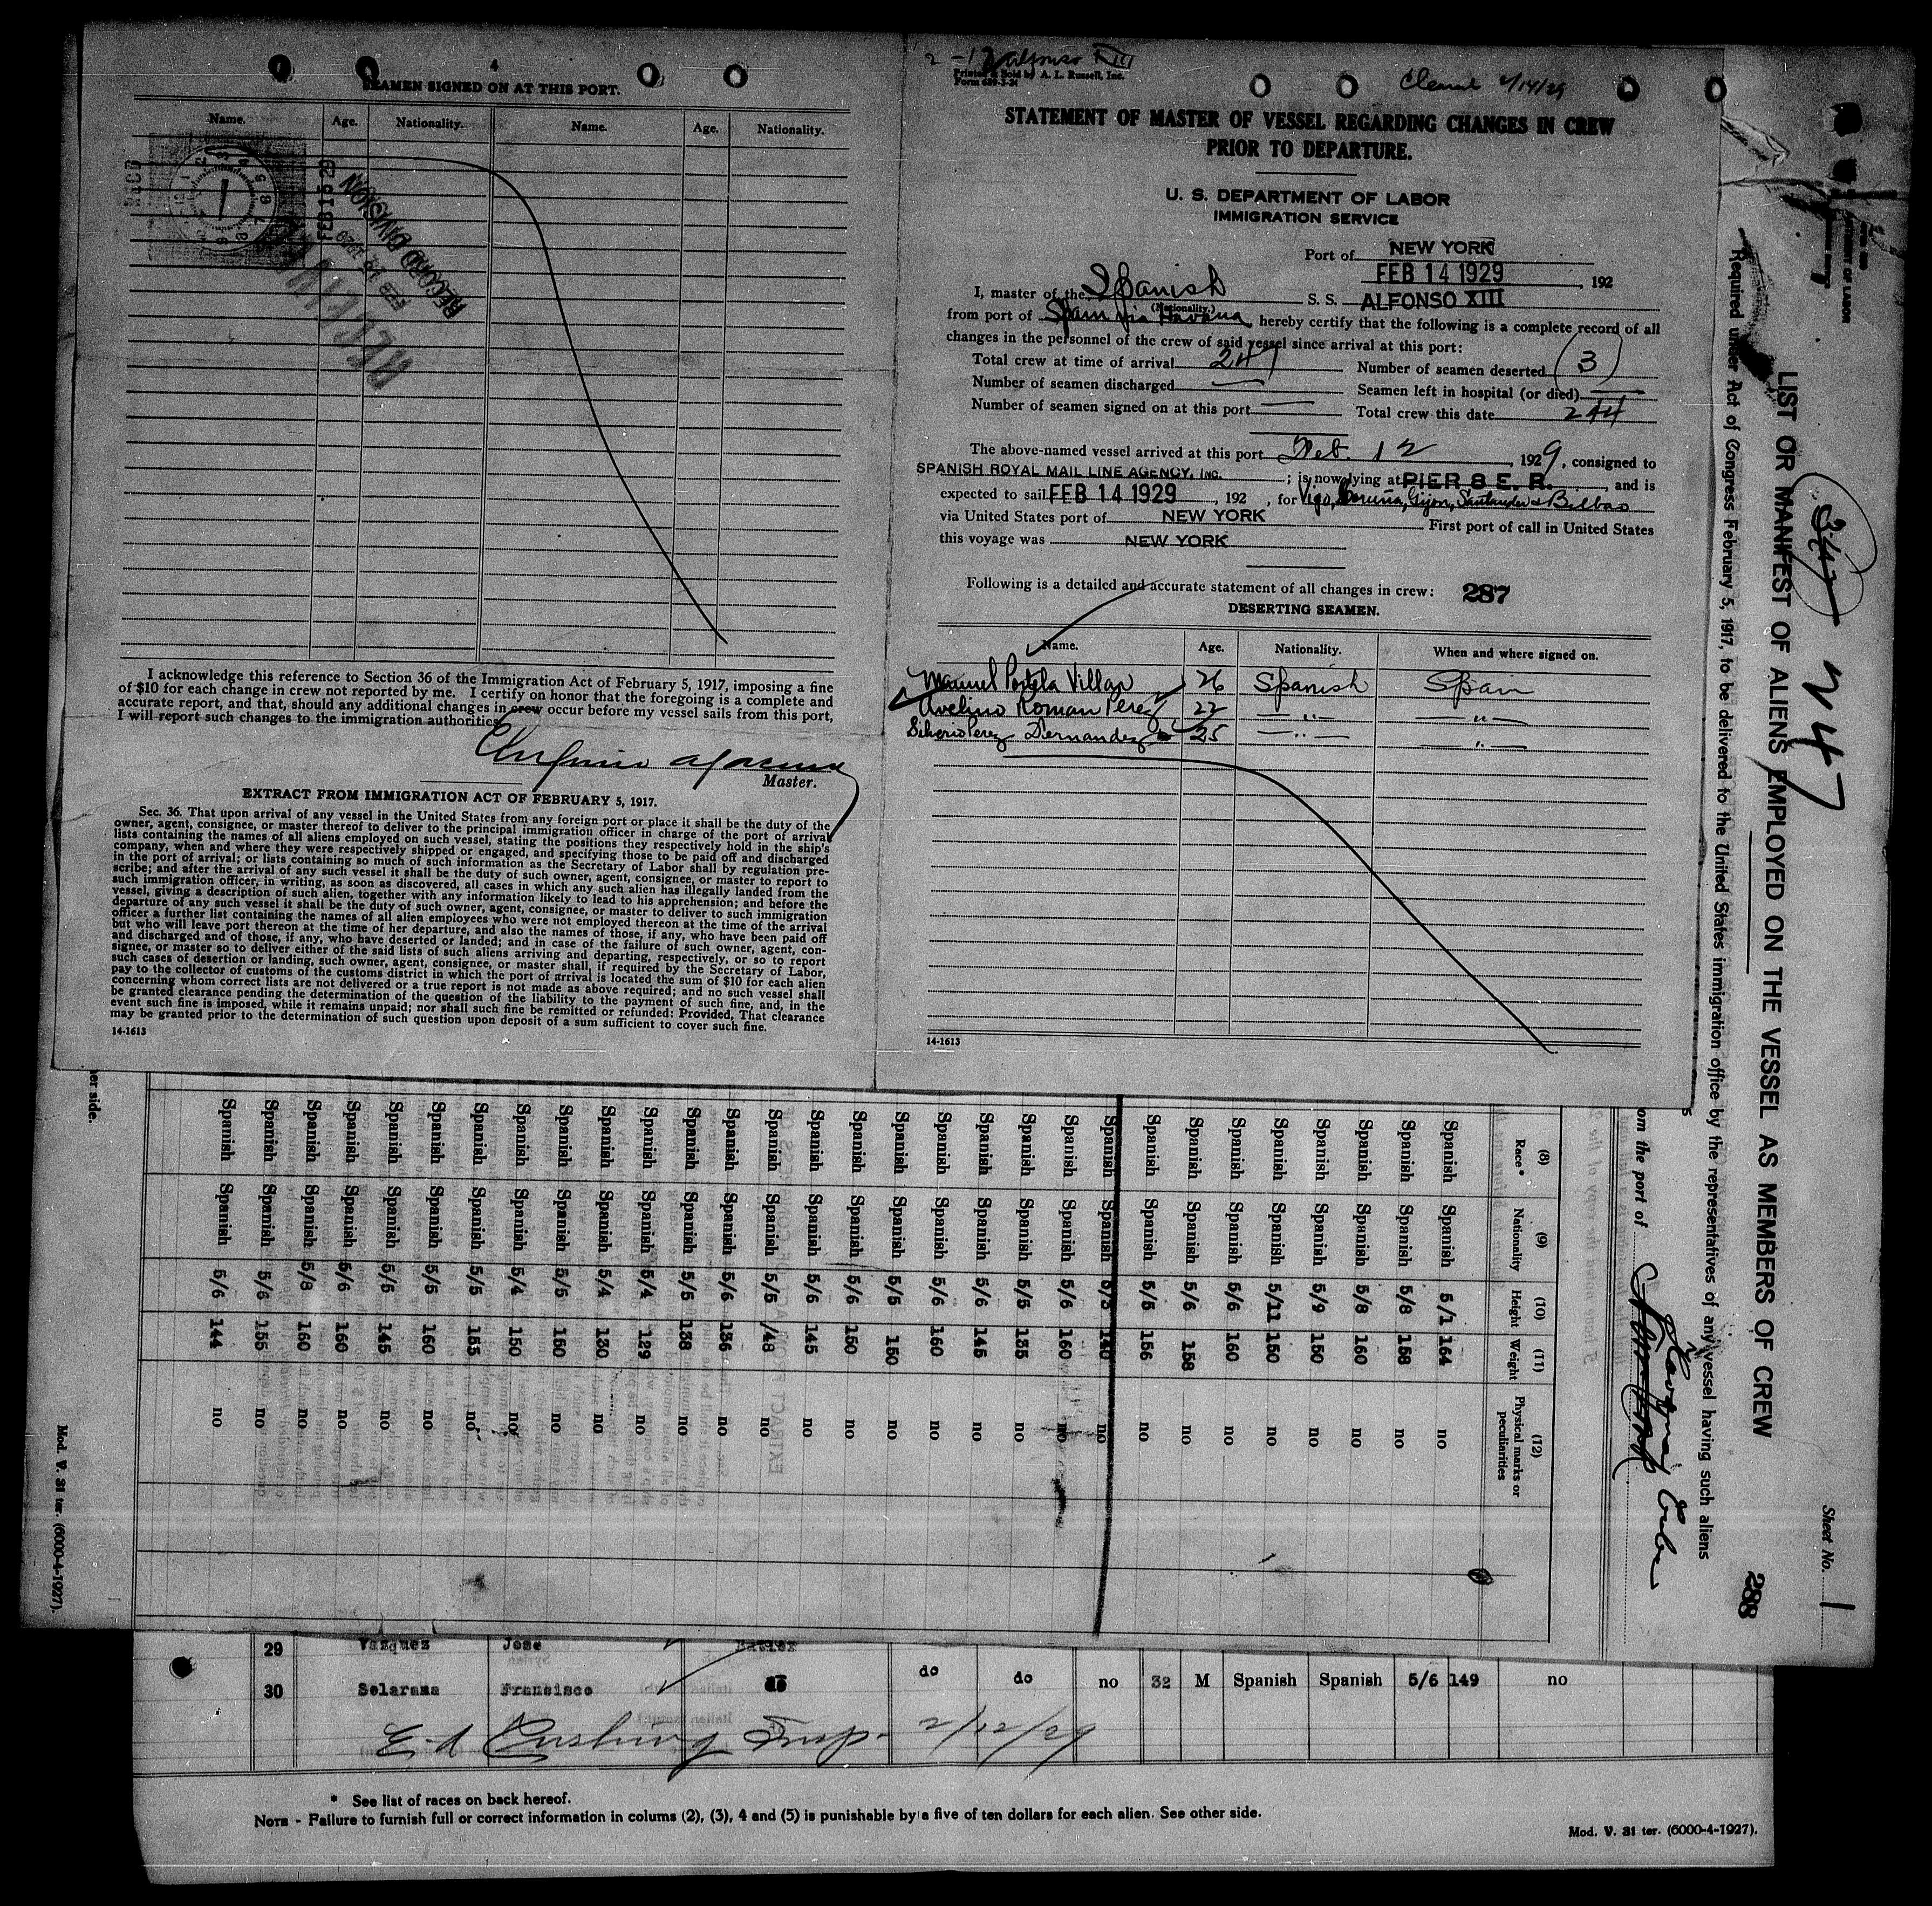 4
SEAMEN SIGNED ON AT THIS PORT.
Name. Age. Nationality. Name. Age. Nationality.
FEB 15 29
RECORD DIVISION
FEB 19 1929
RECEIVED
I acknowledge this reference to Section 36 of the Immigration Act of February 5, 1917, imposing a fine
of $10 for each change in crew not reported by me. I certify on honor that the foregoing is a complete and
accurate report, and that, should any additional changes in crew occur before my vessel sails from this port,
I will report such changes to the immigration authorities.
Master.
EXTRACT FROM IMMIGRATION ACT OF FEBRUARY 5, 1917.
Sec. 36. That upon arrival of any vessel in the United States from any foreign port or place it shall be the duty of the
owner, agent, consignee, or master thereof to deliver to the principal immigration officer in charge of the port of arrival
lists containing the names of all aliens employed on such vessel, stating the positions they respectively hold in the ship's
company, when and where they were respectively shipped or engaged, and specifying those to be paid off and discharged
in the port of arrival; or lists containing so much of such information as the Secretary of Labor shall by regulation pre-
scribe; and after the arrival of any such vessel it shall be the duty of such owner, agent, consignee, or master to report to
such immigration officer, in writing, as soon as discovered, all cases in which any such alien has illegally landed from the
vessel, giving a description of such alien, together with any information likely to lead to his apprehension; and before the
departure of any such vessel it shall be the duty of such owner, agent, consignee, or master to deliver to such immigration
officer a further list containing the names of all alien employees who were not employed thereon at the time of the arrival
but who will leave port thereon at the time of her departure, and also the names of those, if any, who have been paid off
and discharged and of those, if any, who have deserted or landed; and in case of the failure of such owner, agent, con-
signee, or master so to deliver either of the said lists of such aliens arriving and departing, respectively, or so to report
such cases of desertion or landing, such owner, agent, consignee, or master shall, if required by the Secretary of Labor,
pay to the collector of customs of the customs district in which the port of arrival is located the sum of $10 for each alien
concerning whom correct lists are not delivered or a true report is not made as above required; and no such vessel shall
be granted clearance pending the determination of the question of the liability to the payment of such fine, and, in the
event such fine is imposed, while it remains unpaid; nor shall such fine be remitted or refunded: Provided, That clearance
may be granted prior to the determination of such question upon deposit of a sum sufficient to cover such fine.
14-1613
Alfonso XIII
Printed & Sold by A. L. Russell, Inc.
Form 689-3-24
Cleared 2/14/29
STATEMENT OF MASTER OF VESSEL REGARDING CHANGES IN CREW
PRIOR TO DEPARTURE.
U. S. DEPARTMENT OF LABOR
IMMIGRATION SERVICE
Port of NEW YORK
FEB 14 1929, 192
I, master of the Spanish S. S. ALFONSO XIII
(Nationality.)
from port of Spain via Havana hereby certify that the following is a complete record of all
changes in the personnel of the crew of said vessel since arrival at this port:
Total crew at time of arrival 247 Number of seamen deserted (3)
Number of seamen discharged — Seamen left in hospital (or died) —
Number of seamen signed on at this port — Total crew this date 244
The above-named vessel arrived at this port Feb. 12, 1929, consigned to
SPANISH ROYAL MAIL LINE AGENCY, INC.; is now lying at PIER 8 E. R. and is
expected to sail FEB 14 1929, 192 , for Vigo, Coruña, Gijon, Santander & Bilbao
via United States port of NEW YORK First port of call in United States
this voyage was NEW YORK
Following is a detailed and accurate statement of all changes in crew: 287
DESERTING SEAMEN.
Name. Age. Nationality. When and where signed on.
Manuel Portela Villar 26 Spanish Spain
Avelino Roman Perez 22 —"— —"—
Silverio Perez Hernandez 25 —"— —"—
14-1613
Sheet No. 1
288
247
LIST OR MANIFEST OF ALIENS EMPLOYED ON THE VESSEL AS MEMBERS OF CREW
Required under Act of Congress February 5, 1917, to be delivered to the United States immigration office by the representatives of any vessel having such aliens
om the port of Havana, Cuba
(8) (9) (10) (11) (12)
Race* Nationality Height Weight Physical marks or peculiarities
Spanish Spanish 5/1 164 no
Spanish Spanish 5/8 158 no
Spanish Spanish 5/8 160 no
Spanish Spanish 5/9 150 no
Spanish Spanish 5/11 150 no
Spanish Spanish 5/6 160 no
Spanish Spanish 5/6 158 no
Spanish Spanish 5/5 156 no
Spanish Spanish 5/3 140 no
Spanish Spanish 5/6 160 no
Spanish Spanish 5/5 135 no
Spanish Spanish 5/6 145 no
Spanish Spanish 5/6 160 no
Spanish Spanish 5/5 150 no
Spanish Spanish 5/6 150 no
Spanish Spanish 5/6 145 no
Spanish Spanish 5/5 /48 no
Spanish Spanish 5/6 136 no
Spanish Spanish 5/5 138 no
Spanish Spanish 5/4 129 no
Spanish Spanish 5/4 130 no
Spanish Spanish 5/5 150 no
Spanish Spanish 5/4 150 no
Spanish Spanish 5/5 153 no
Spanish Spanish 5/5 160 no
Spanish Spanish 5/5 145 no
Spanish Spanish 5/6 160 no
Spanish Spanish 5/8 160 no
Spanish Spanish 5/6 155 no
Spanish Spanish 5/6 144 no
er side.
Mod. V. 31 ter. (6000-4-1927).
29 Vazquez Jose
30 Solarana Francisco do do do no 32 M Spanish Spanish 5/6 149 no
2/12/29
* See list of races on back hereof.
NOTE - Failure to furnish full or correct information in colums (2), (3), 4 and (5) is punishable by a five of ten dollars for each alien. See other side.
Mod. V. 31 ter. (6000-4-1927).